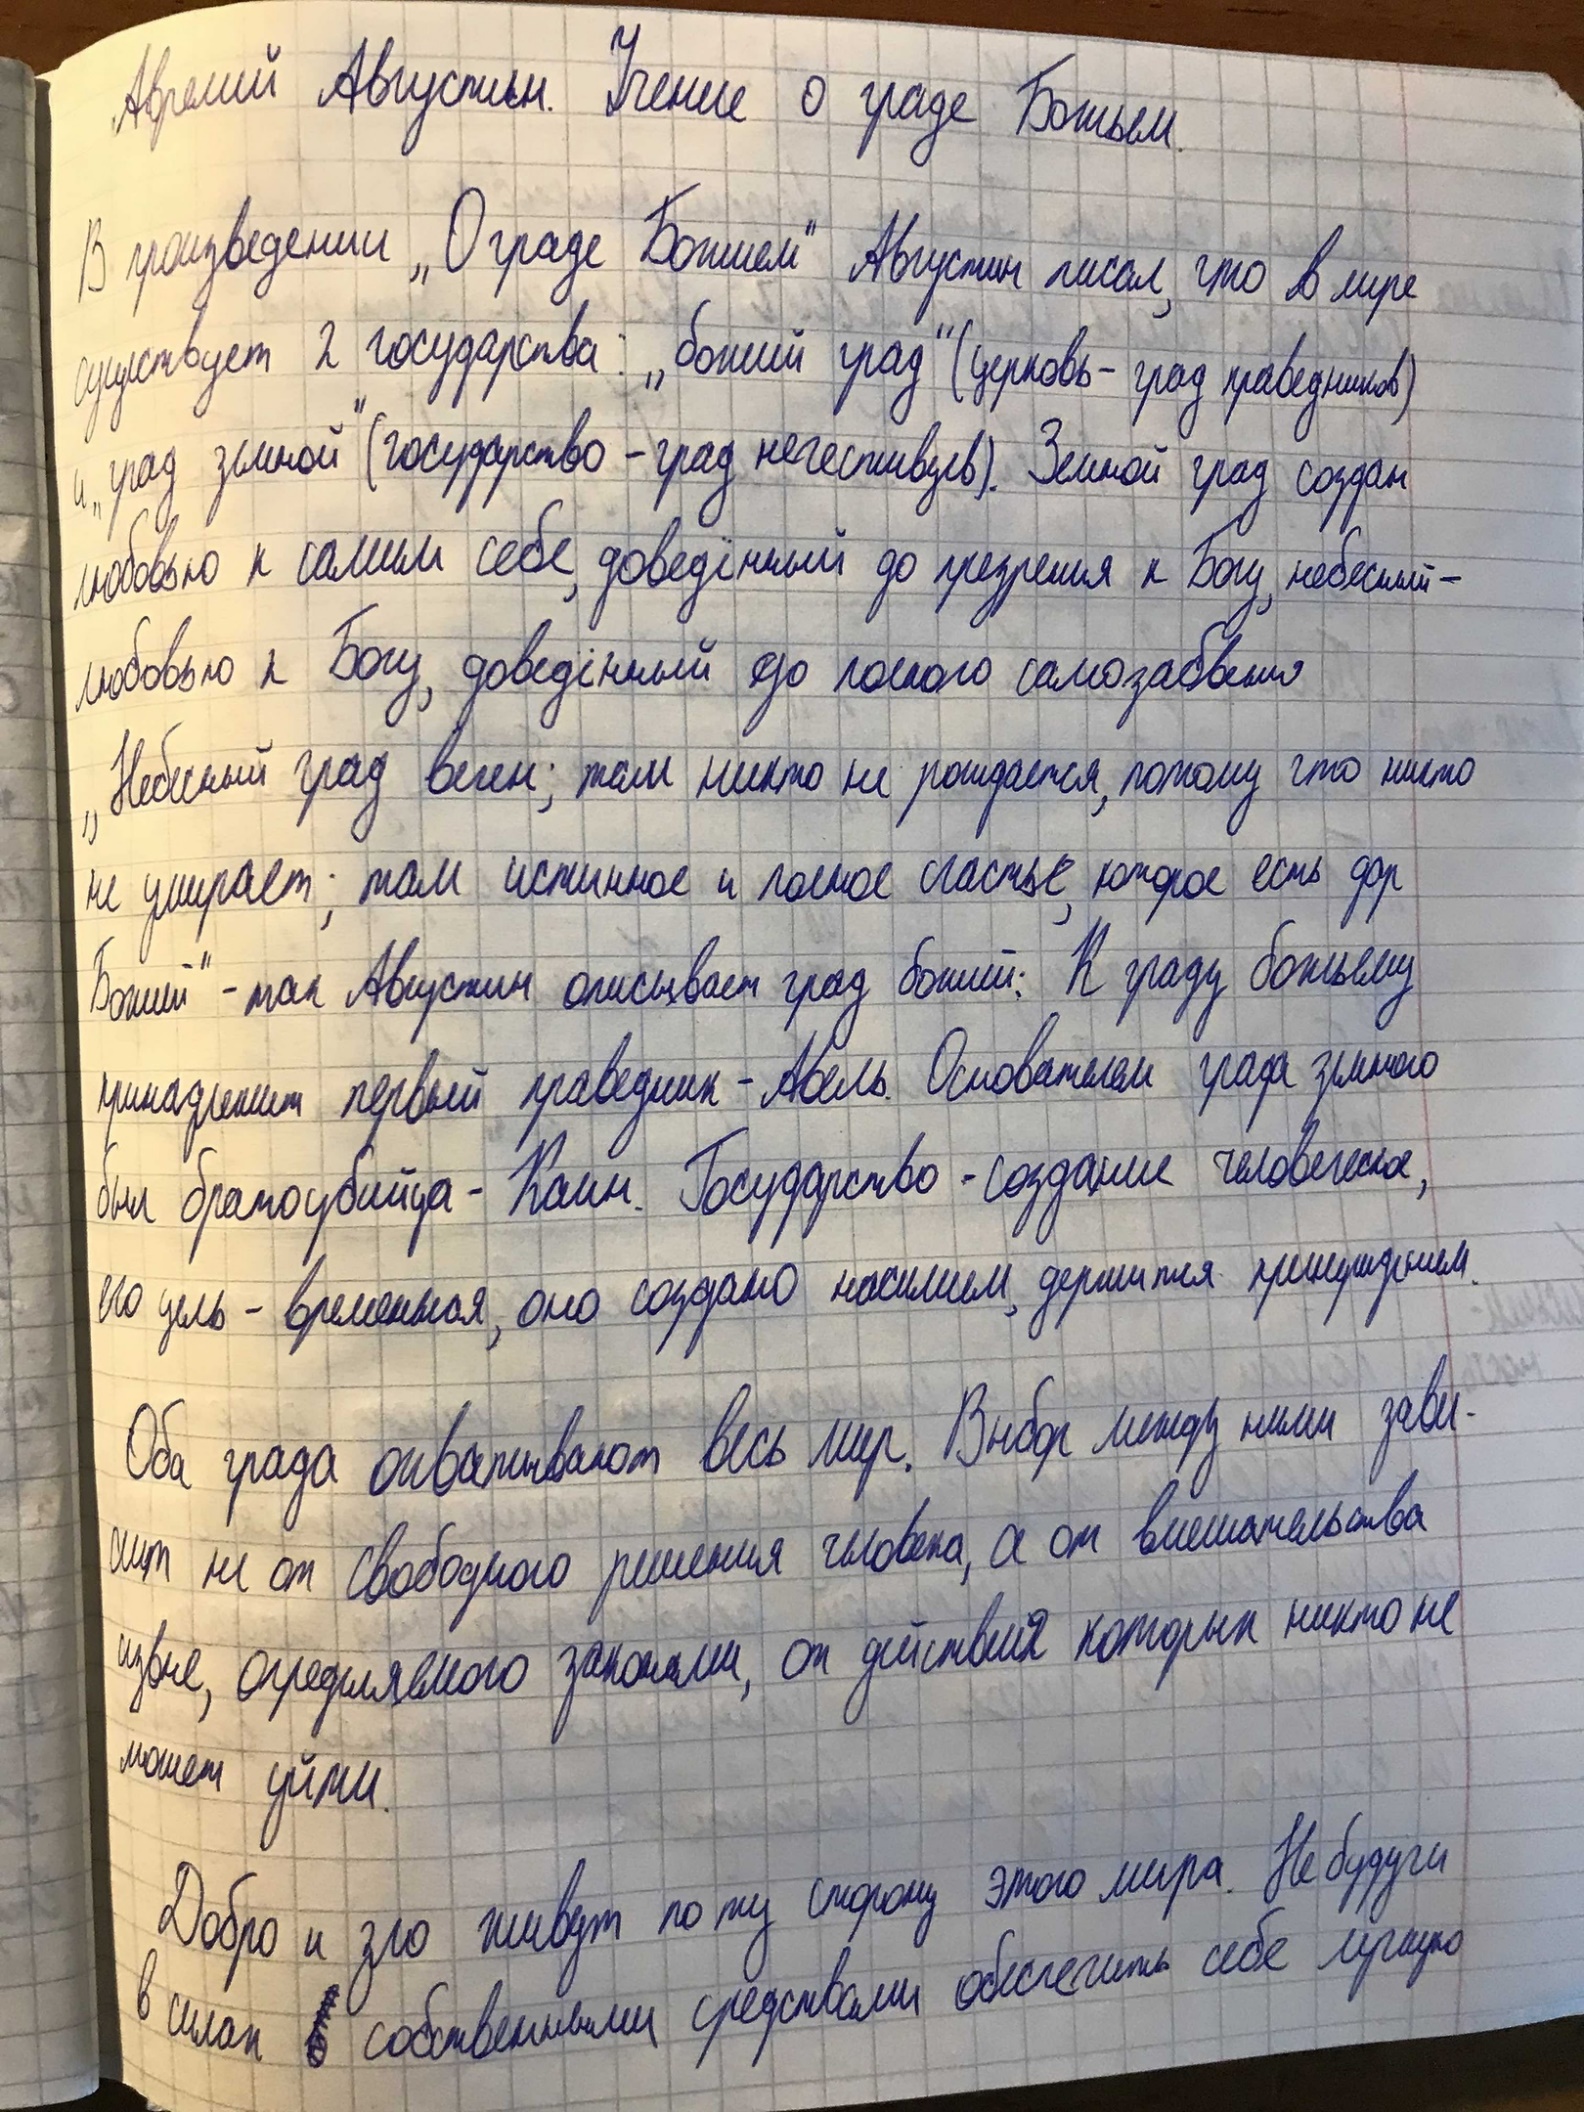 Аврелий Августин. Учение о граде Божьем.
В произведении „О граде Божием“ Августин писал, что в мире
существует 2 государства: „божий град“ (церковь - град праведников)
и „град земной“ (государство - град нечестивцев). Земной град создан
любовью к самим себе, доведённый до презрения к Богу, небесный -
любовью к Богу, доведённый до полного самозабвения
„Небесный град вечен; там никто не рождается, потому что никто
не умирает; там истинное и полное счастье, которое есть дар
Божий“ - так Августин описывает град божий. К граду божьему
принадлежит первый праведник - Авель. Основателем града земного
был братоубийца - Каин. Государство - создание человеческое,
его цель - временная, оно создано насилием, держится принуждением.
Оба града охватывают весь мир. Выбор между ними зави-
сит не от свободного решения человека, а от вмешательства
извне, определяемого законами, от действия которых никто не
может уйти.
Добро и зло живут по ту сторону этого мира. Не будучи
в силах собственными средствами обеспечить себе лучшую